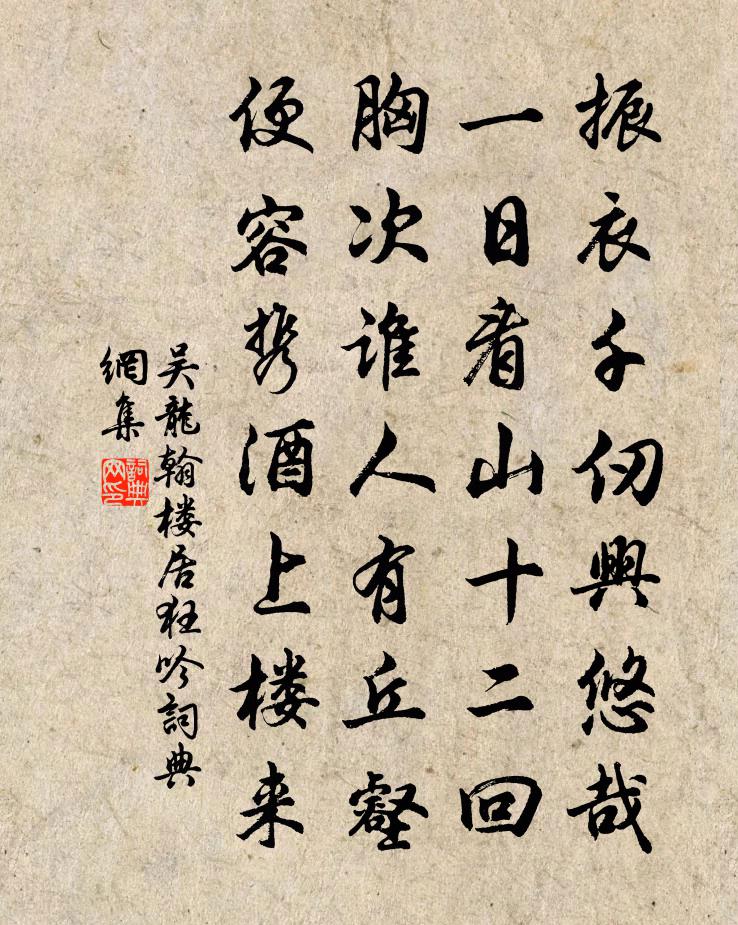 振衣千仞興悠哉
一日看山十二回
胸次谁人有丘壑
便容携酒上楼来
吴龍翰楼居狂吟詞典
網集
詞典
网印